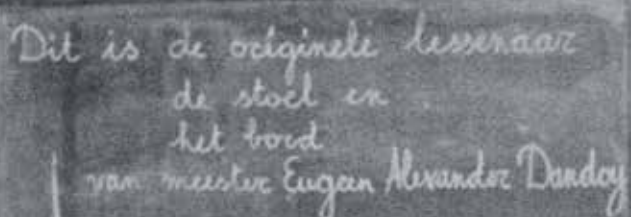 Dit is de originele lessenaar
de stoel en
het bord
van meester Eugeen Alexander Dandoy